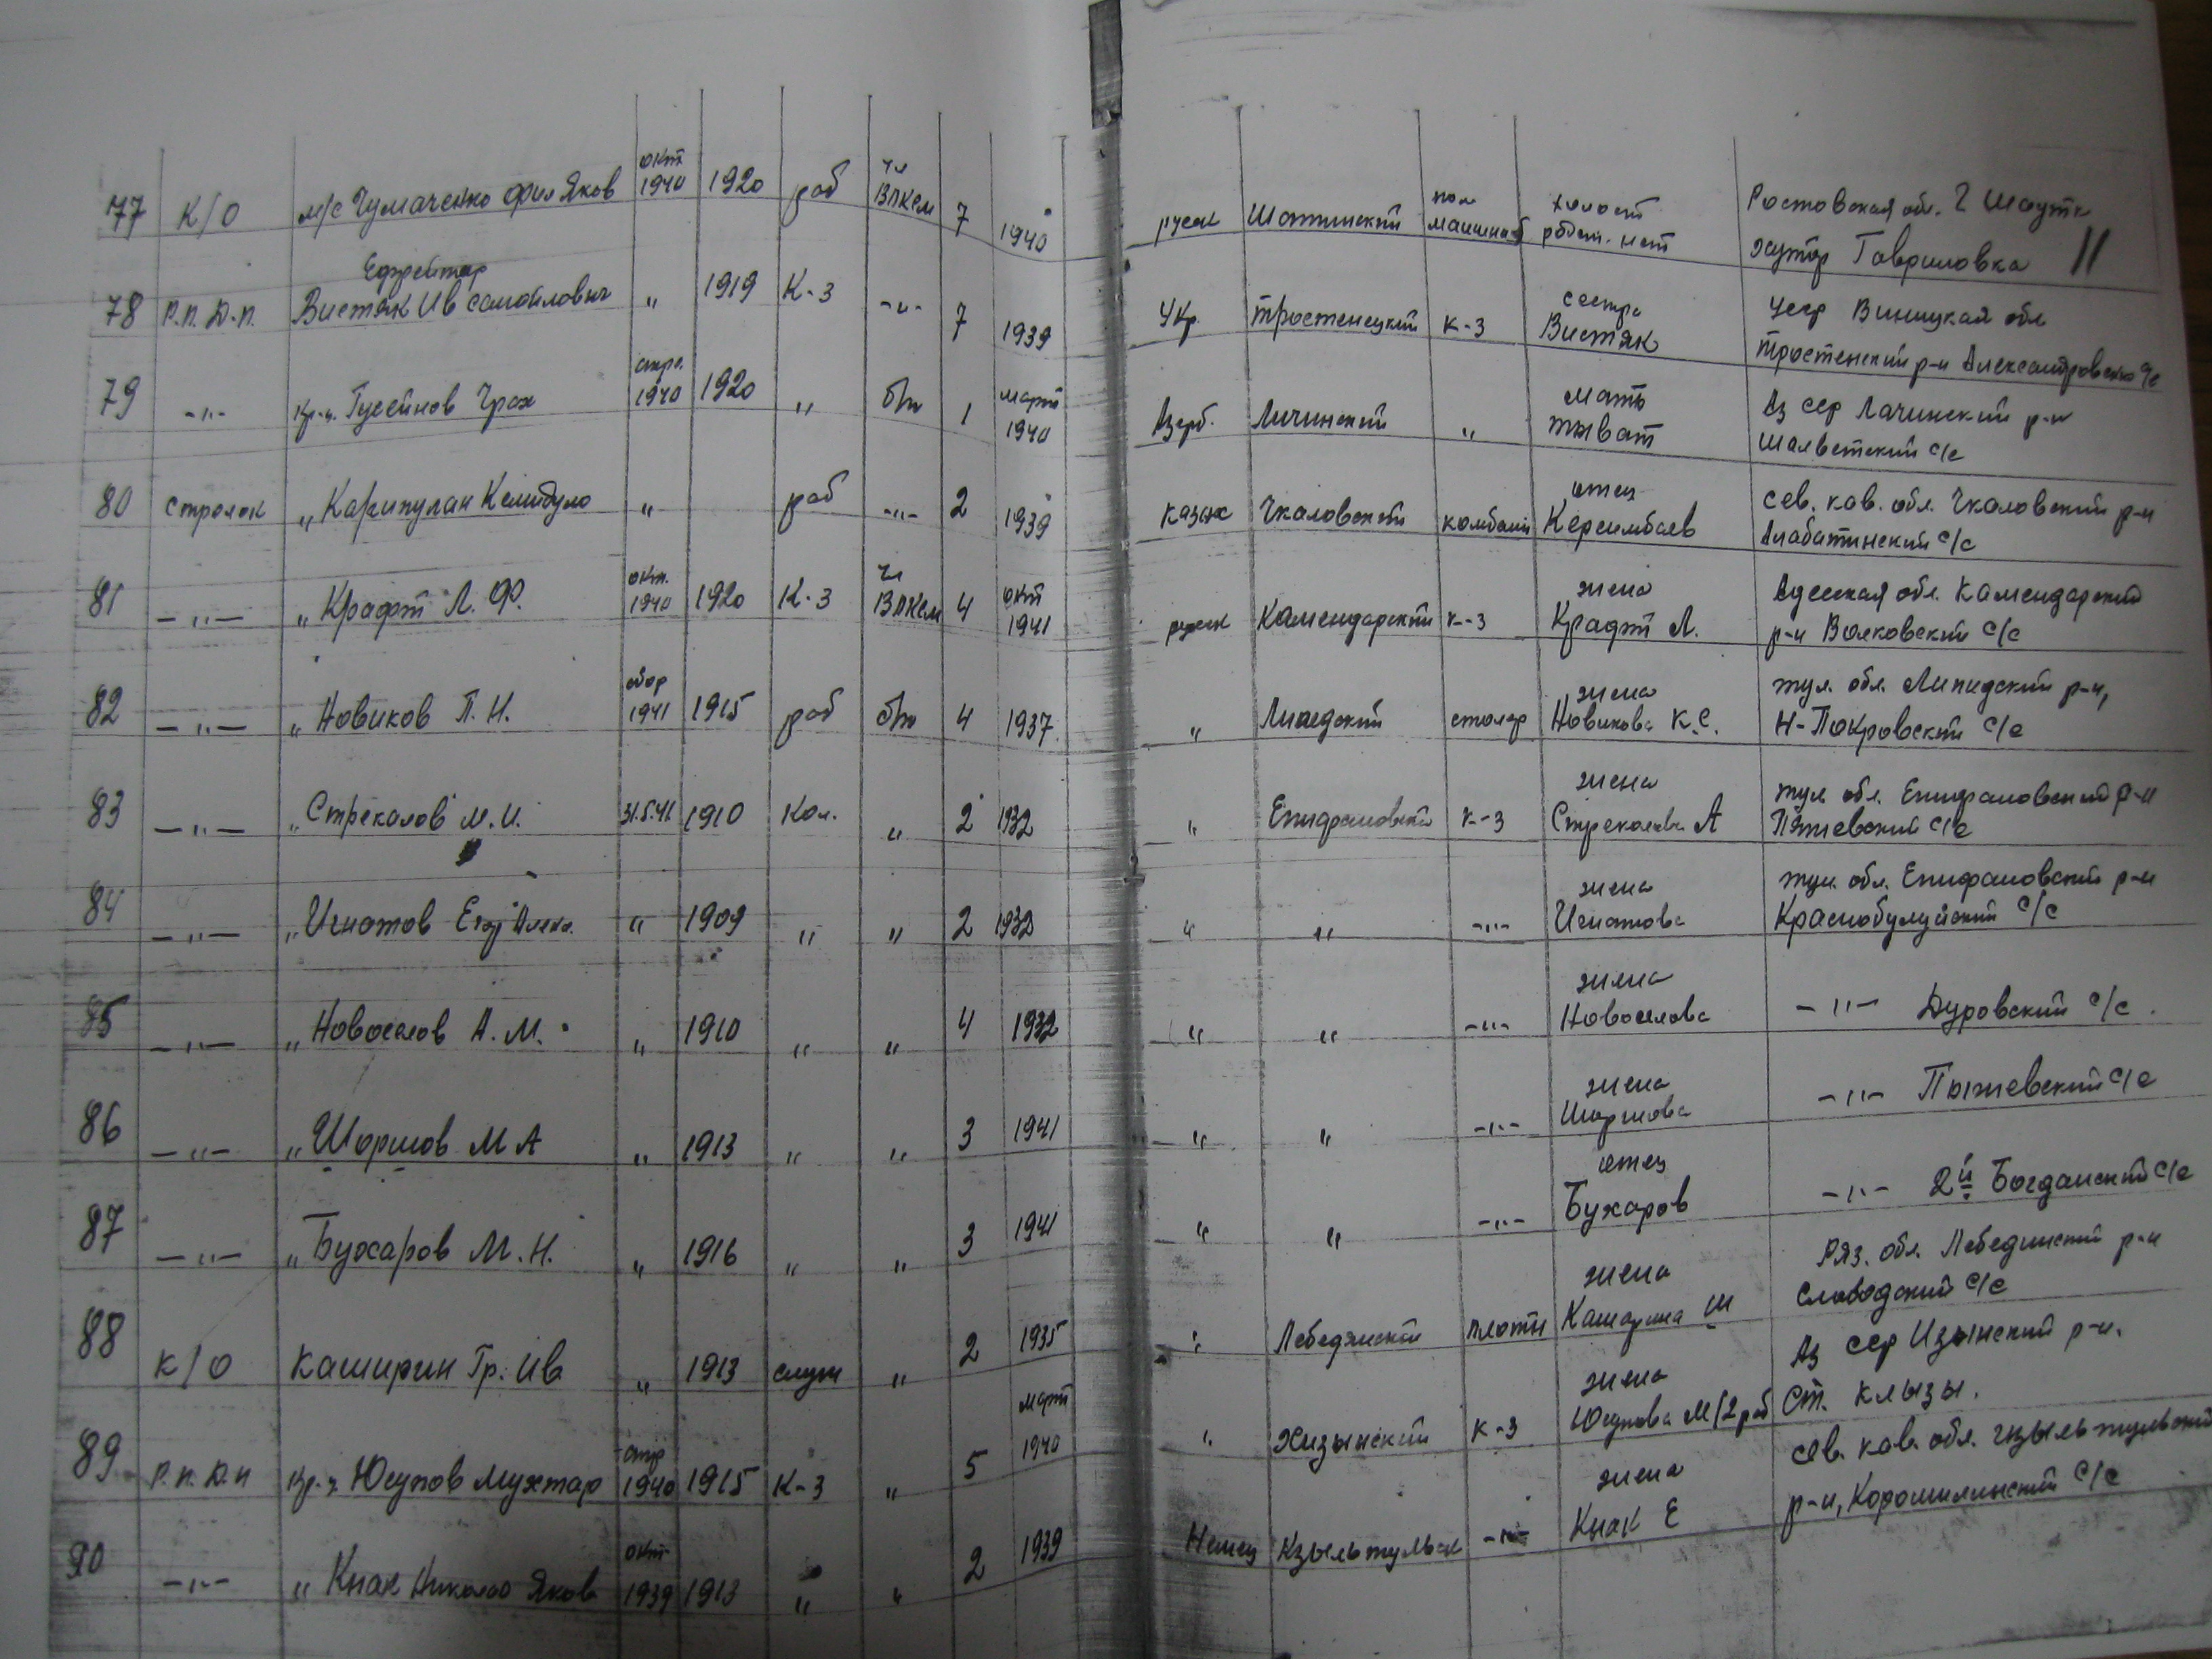 77 К/О м/с Чумаченко Фил Яков окт 1940 1920 раб чл ВЛКСМ 7 1940 русск Шатинский пом машинист холост родст. нет Ростовская обл. г Шахты хутор Гавриловка
78 Р.П.Д.П. Ефрейтор Вистяк Ив Самойлович " 1919 К-З -"- 7 1939 Укр. Тростенецкий к-з сестра Вистяк Усср Виницкая обл Тростенский р-н Александровско с/с
79 -"- кр-ц Гусейнов 1940 1920 " б/п 1 март 1940 Азерб. Лачинский " мать Аз сср Лачинский р-н с/с
80 стрелок " " раб -"- 2 1939 казах Чкаловский комбайн отец Керсимбаев Сев. каз. обл. Чкаловский р-н Алабатинский с/с
81 -"- " Крафт Л. Ф. окт. 1940 1920 К-З чл ВЛКСМ 4 окт 1941 русск Камендарский к-з жена Крафт Л. Адесская обл. Камендарский р-н Волковский с/с
82 -"- " Новиков П. Н. 1941 1915 раб б/п 4 1937 " столяр жена Новикова К.С. Тул. обл. р-н, Н-Покровский с/с
83 -"- " Стрекалов М. И. 31.5.41 1910 Кол. " 2 1932 " Епифановский к-з жена Стрекалова А Тул обл. Епифановский р-н с/с
84 -"- " Игнатов Егор Алекс. " 1909 " " 2 1932 " " -"- жена Игнатова Тул. обл. Епифановский р-н с/с
85 -"- " Новоселов А. М. " 1910 " " 4 1932 " " -"- жена Новоселова -"- Дуровский с/с.
86 -"- " Шоршов М А " 1913 " " 3 1941 " " -"- жена Шоршова -"- Пыжевский с/с
87 -"- " Бухаров М. Н. " 1916 " " 3 1941 " " -"- отец Бухаров -"- 2й с/с
88 К/О Каширин Гр. Ив " 1913 служ " 2 1935 " Лебедянский плотн жена Каширина Ряз. обл. Лебединский р-н Слободский с/с
89 Р.П.Д.П кр-ц Юсупов Мухтар 1940 1915 К-З " 5 март 1940 " Хизынский к-з жена Юсупова М/2 раб Аз сср р-н. ст. Клызы.
90 -"- " Кнак Николай Яков окт 1939 1913 " " 2 1939 Немец Кзыльтульск -"- жена Кнак Е Сев. каз. обл. р-н, с/с